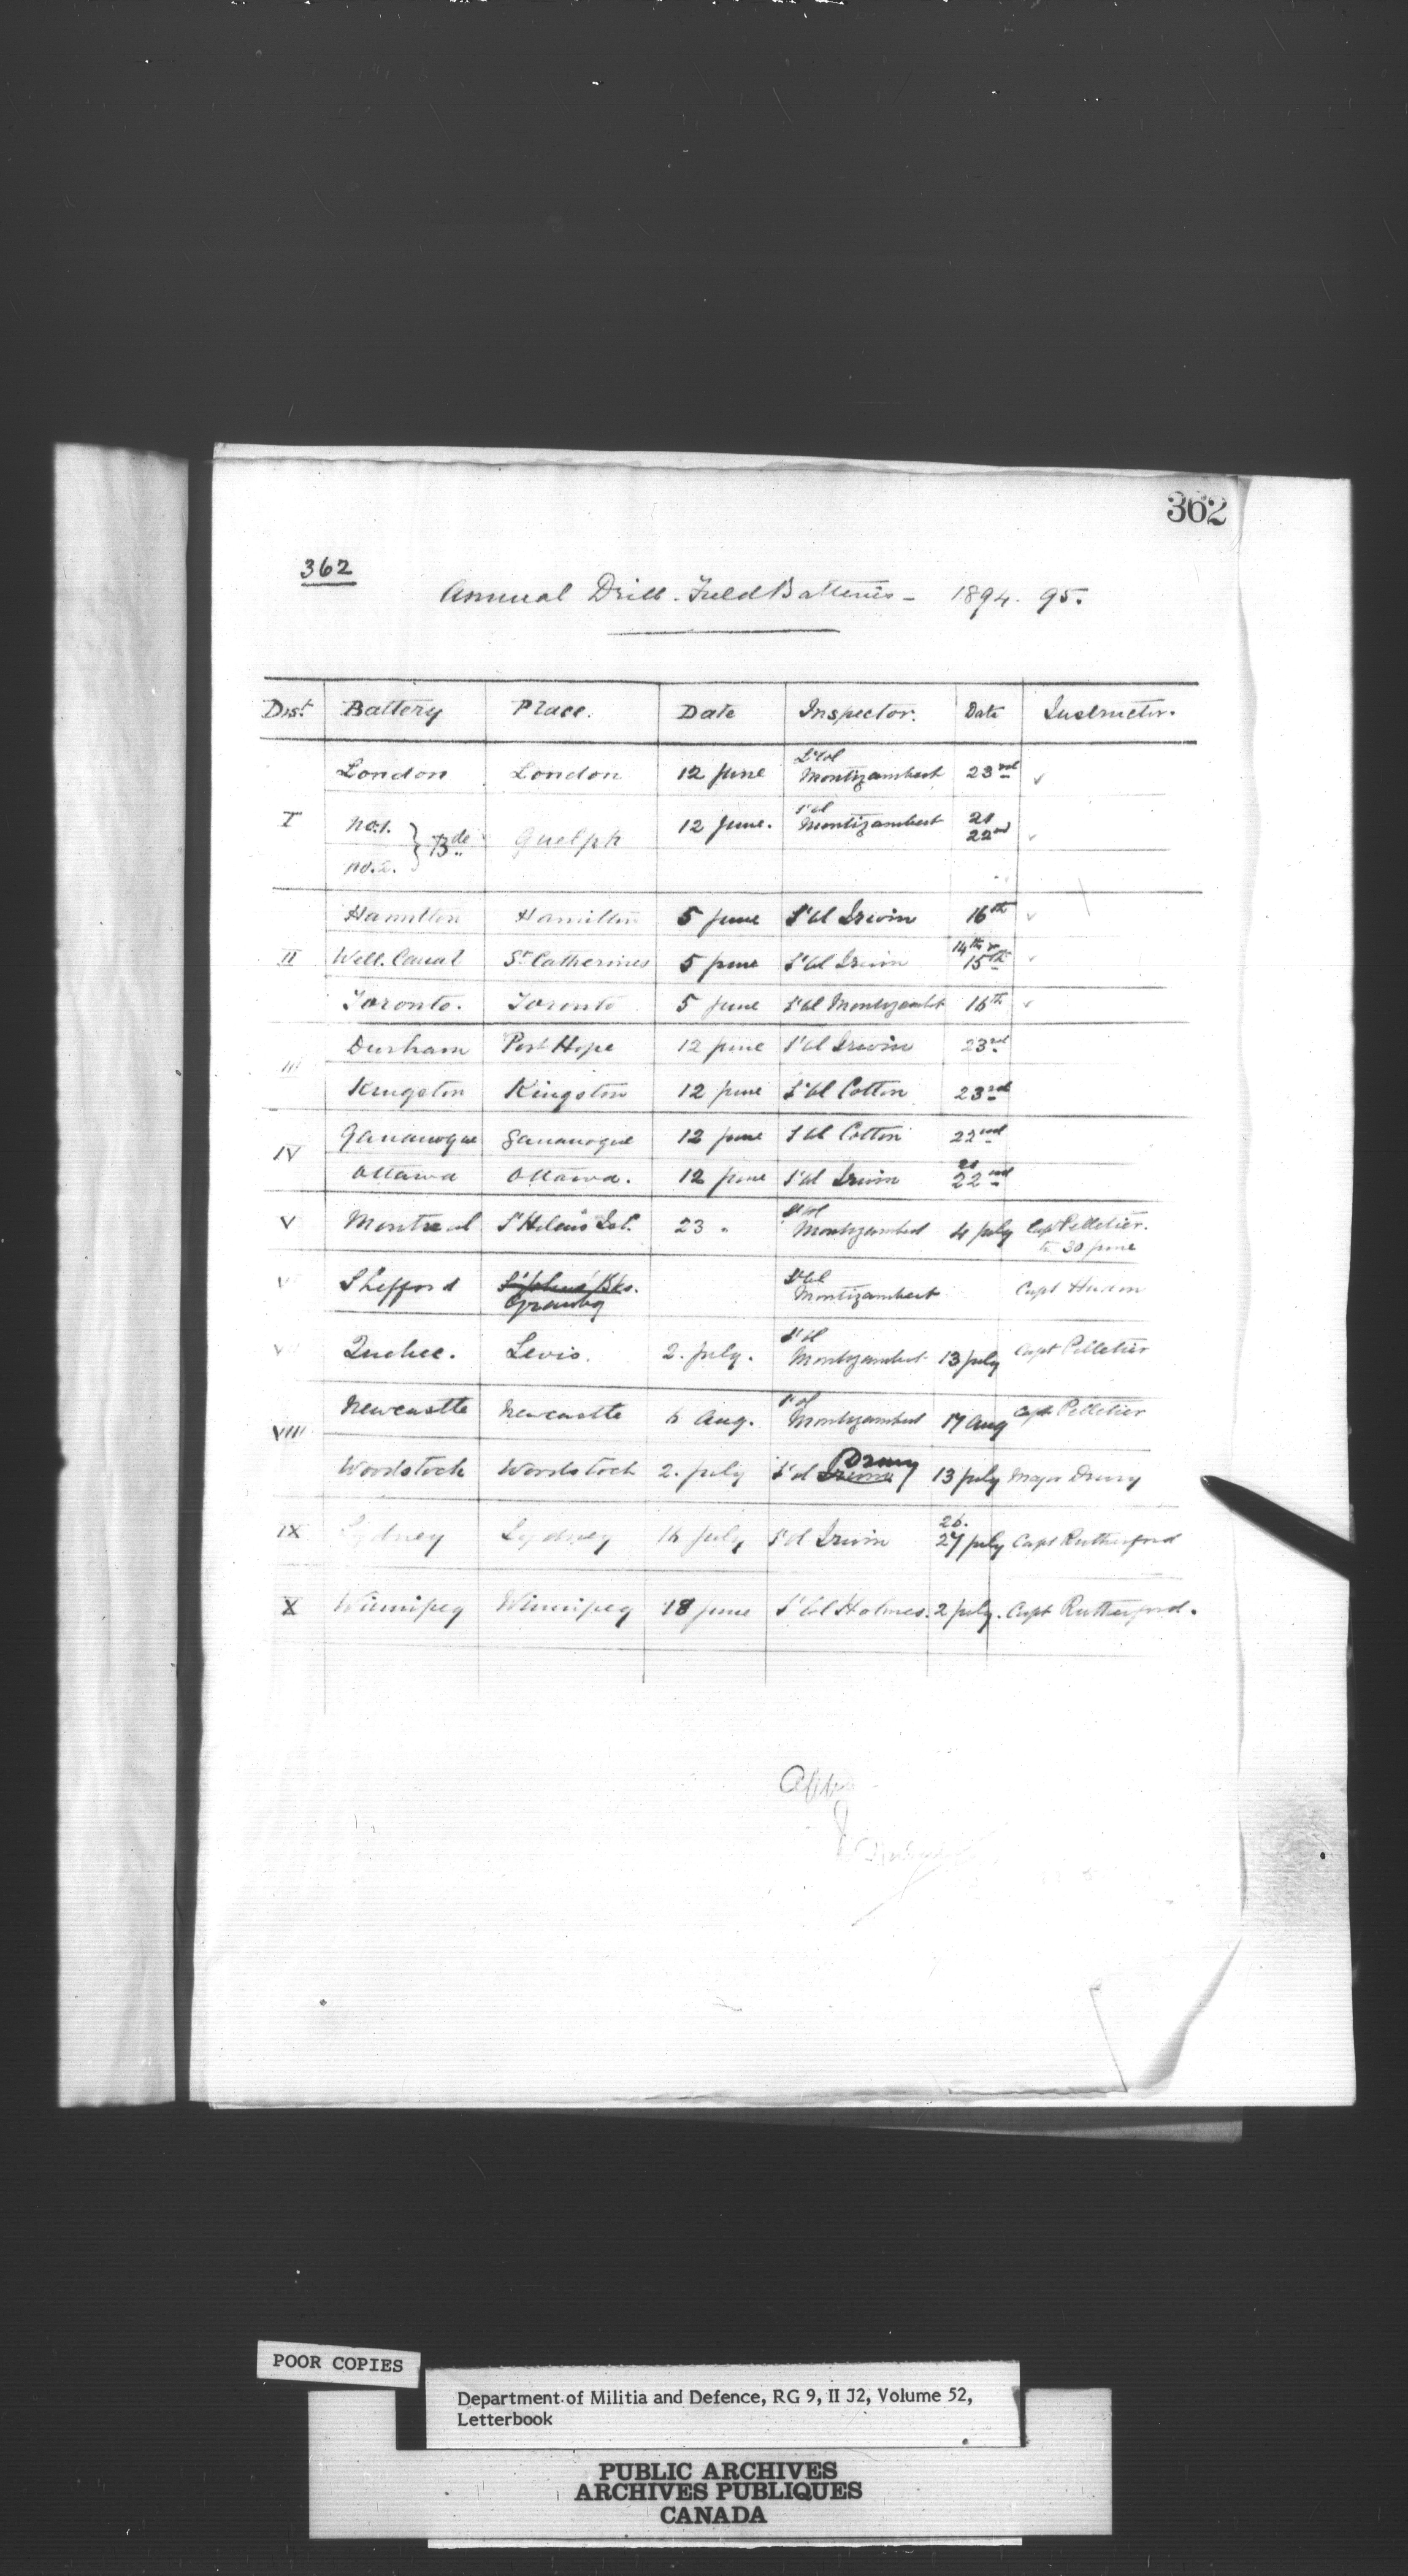 362
362
Annual Drill. Field Batteries - 1894. 95.
Dist. Battery Place. Date Inspector. Date Instructor.
I London London 12 June Lt Col Montizambert 23rd ✓
No. 1. No. 2. } Bde Guelph 12 June. Lt Col Montizambert 21 22nd ✓
Hamilton Hamilton 5 June Lt Col Irwin 16th ✓
II Well. Canal St Catherines 5 June Lt Col Irwin 14th & 15th ✓
Toronto. Toronto 5 June Lt Col Montizambt 16th ✓
III Durham Port Hope 12 June Lt Col Irwin 23rd
Kingston Kingston 12 June Lt Col Cotton 23rd
IV Gananoque Gananoque 12 June Lt Col Cotton 22nd
Ottawa Ottawa. 12 June Lt Col Irwin 21 22nd
V Montreal St Helen's Isl. 23 " Lt Col Montizambert 4 July Capt Pelletier. to 30 June
Shefford Granby Lt Col Montizambert Capt Hudon
Quebec. Levis. 2. July. Lt Col Montizambert 13 July Capt Pelletier
VIII Newcastle Newcastle 6 Aug. Lt Col Montizambert 17 Aug Capt Pelletier
Woodstock Woodstock 2. July Lt Col Irwin Drury 13 July Major Drury
IX Sydney Sydney 16 July Lt Col Irwin 26. 27 July Capt Rutherford
X Winnipeg Winnipeg 18 June Lt Col Holmes. 2 July. Capt Rutherford.
POOR COPIES
Department of Militia and Defence, RG 9, II J2, Volume 52,
Letterbook
PUBLIC ARCHIVES
ARCHIVES PUBLIQUES
CANADA